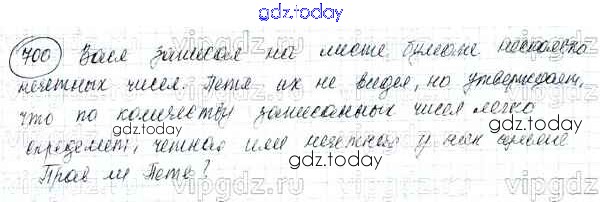 gdz.today
700 Вася записал на листе бумаги несколько
нечетных чисел. Петя их не видел, но утверждает,
что по количеству записанных чисел легко
определит, четная или нечетная у них сумма
Прав ли Петя?
gdz.today
gdz.today
gdz.today
vipgdz.ru